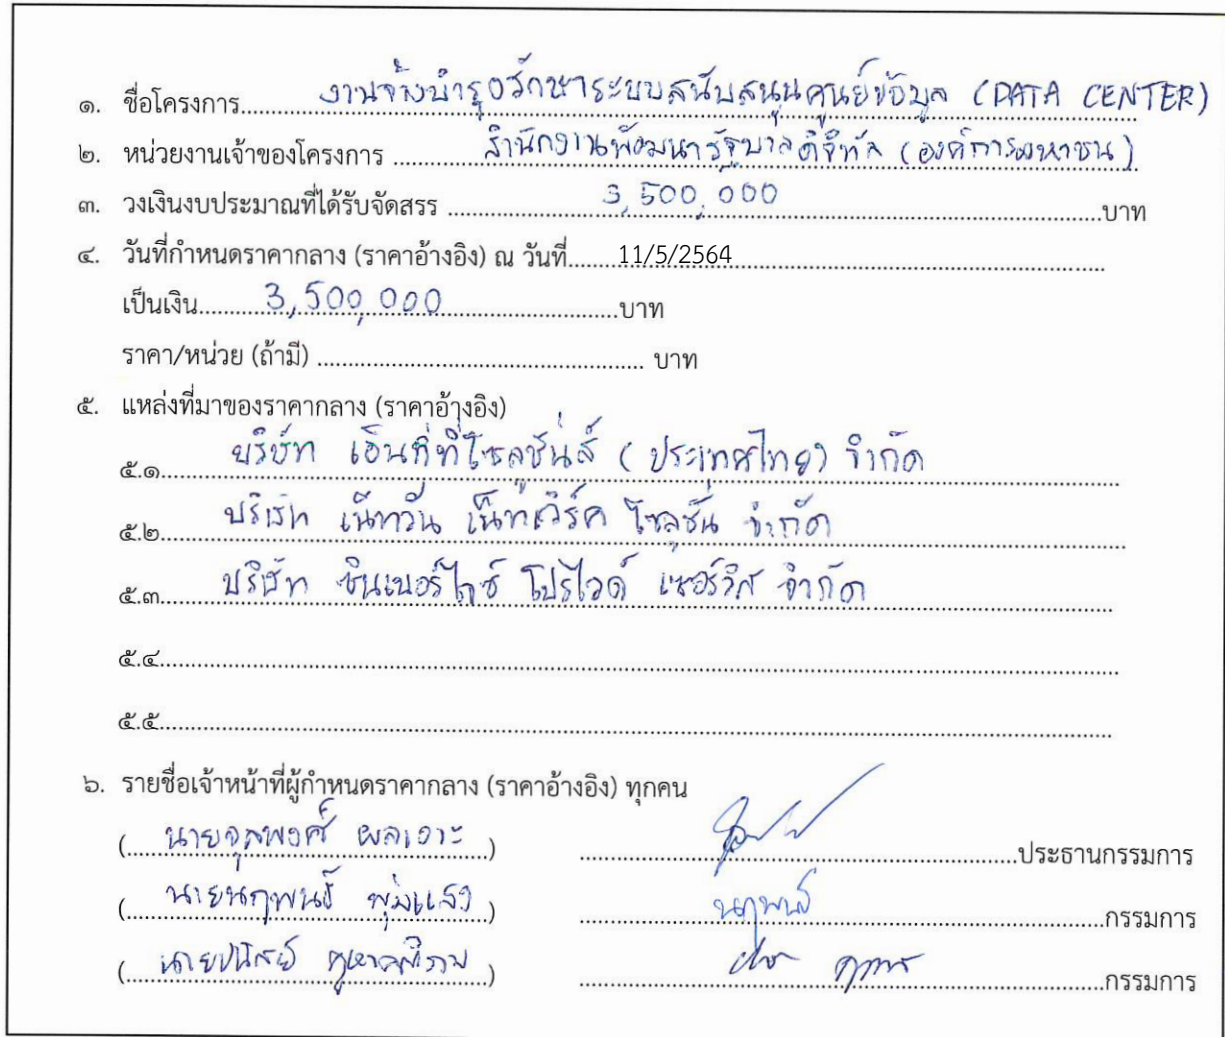 ๑. ชื่อโครงการ งานจ้างบำรุงรักษาระบบสนับสนุนศูนย์ข้อมูล (DATA CENTER)
๒. หน่วยงานเจ้าของโครงการ สำนักงานพัฒนารัฐบาลดิจิทัล (องค์การมหาชน)
๓. วงเงินงบประมาณที่ได้รับจัดสรร 3,500,000 บาท
๔. วันที่กำหนดราคากลาง (ราคาอ้างอิง) ณ วันที่ 11/5/2564
เป็นเงิน 3,500,000 บาท
ราคา/หน่วย (ถ้ามี) บาท
๕. แหล่งที่มาของราคากลาง (ราคาอ้างอิง)
๕.๑ บริษัท เอ็นทีทีโซลูชั่นส์ (ประเทศไทย) จำกัด
๕.๒ บริษัท เน็ทวัน เน็ทเวิร์ค โซลูชั่น จำกัด
๕.๓ บริษัท ซินเนอร์ไจซ์ โปรไวด์ เซอร์วิส จำกัด
๕.๔
๕.๕
๖. รายชื่อเจ้าหน้าที่ผู้กำหนดราคากลาง (ราคาอ้างอิง) ทุกคน
(นายจุลพงศ์ ผลเงาะ) ประธานกรรมการ
(นายนฤพนธ์ พุ่มแสง) นฤพนธ์ กรรมการ
(นายปนิสย์) กรรมการ